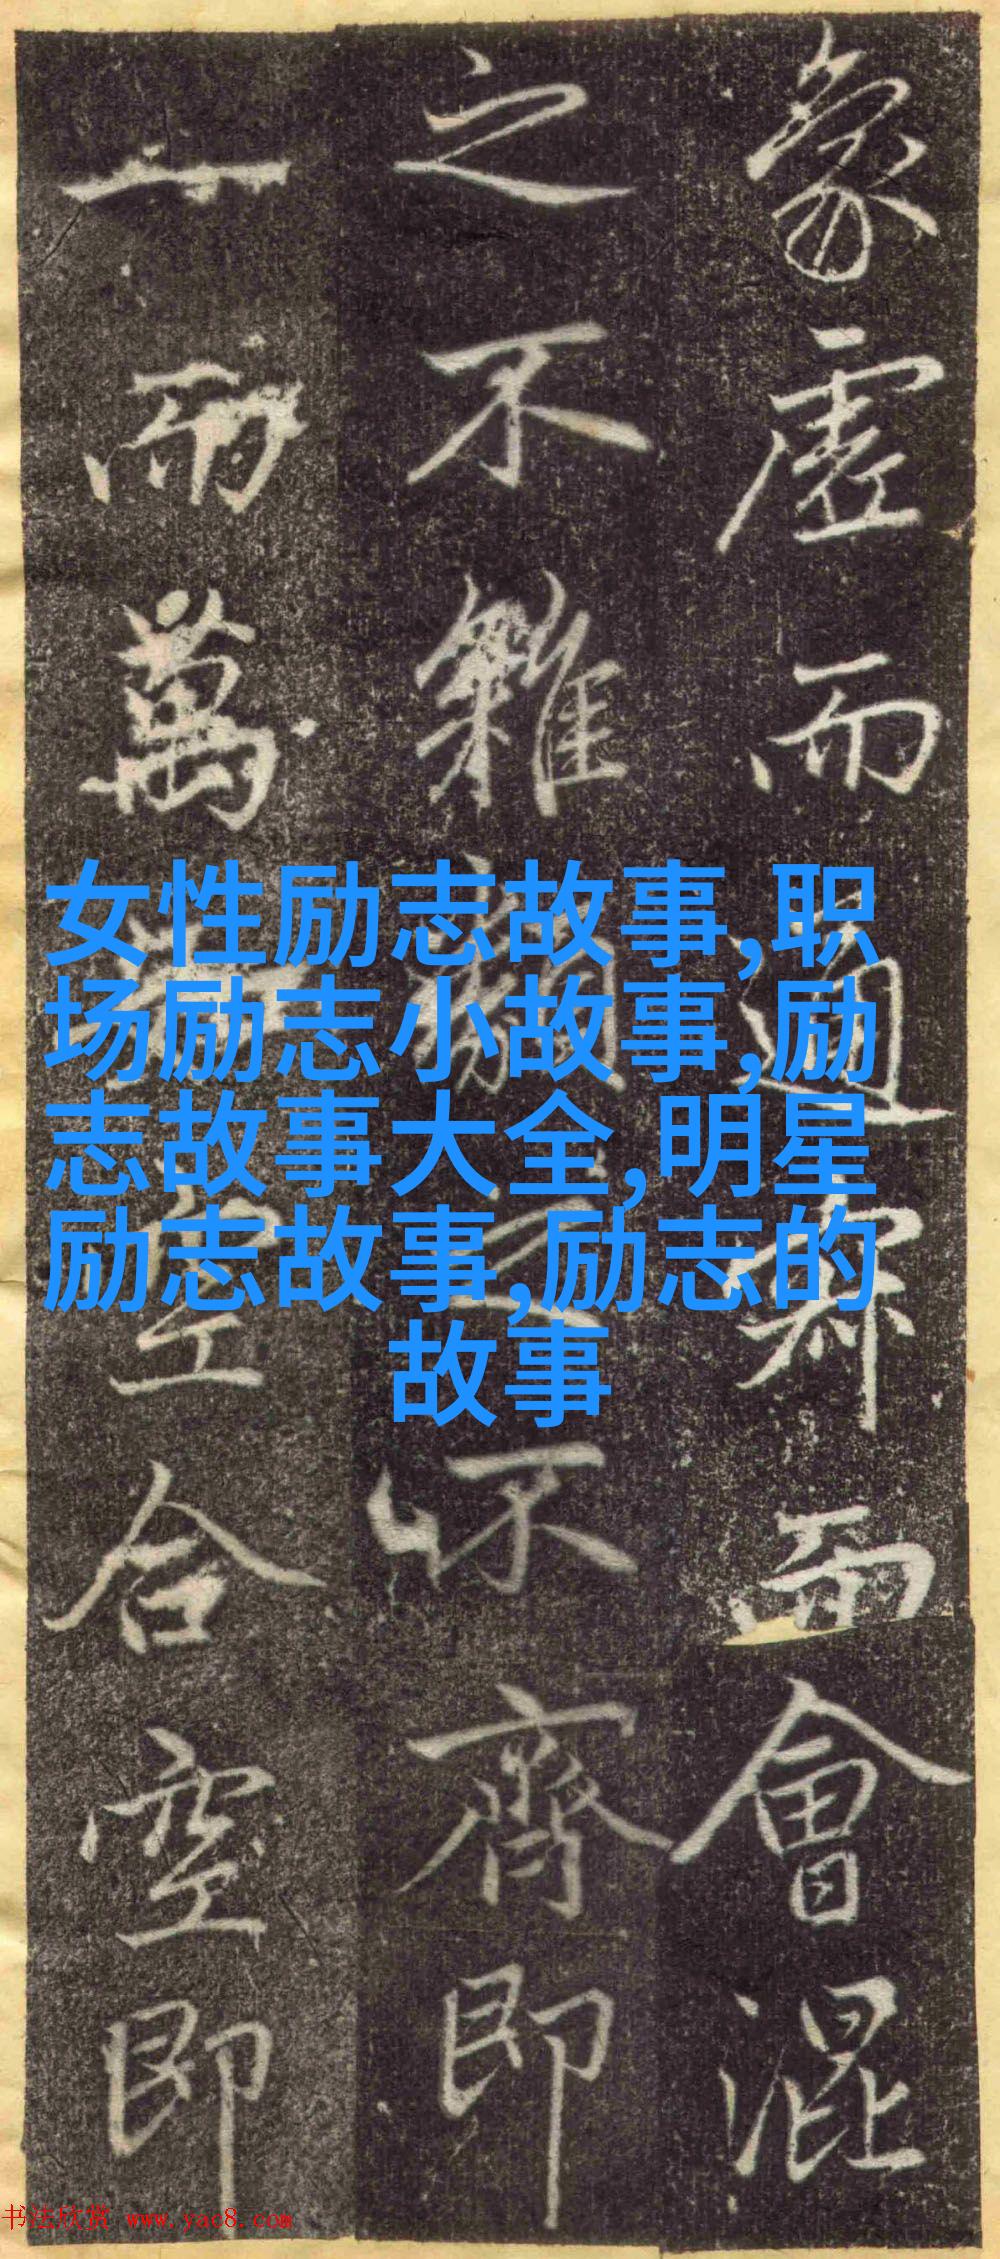 象虛而通而會混
之不雜之不齊即
一而萬空合空即
女性励志故事,职
场励志小故事,励
志故事大全,明星
励志故事,励志的
故事
书法欣赏 www.yac8.com